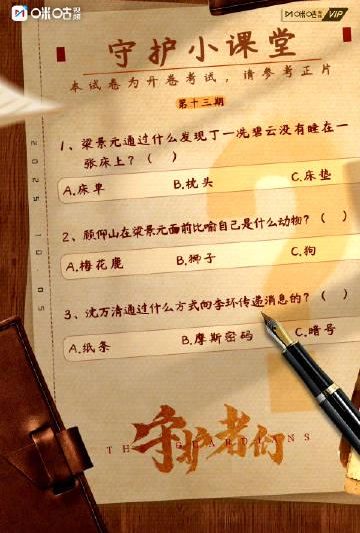 咪咕视频
咪咕视频 VIP
守护小课堂
本试卷为开卷考试，请参考正片
第十三期
1、梁景元通过什么发现丁一冼碧云没有睡在一
张床上？（ ）
A.床单 B.枕头 C.床垫
2、顾仰山在梁景元面前比喻自己是什么动物？（ ）
A.梅花鹿 B.狮子 C.狗
3、沈万清通过什么方式向李环传递消息的？（ ）
A.纸条 B.摩斯密码 C.暗号
2025 10 05
守护者们
THE GUARDIANS